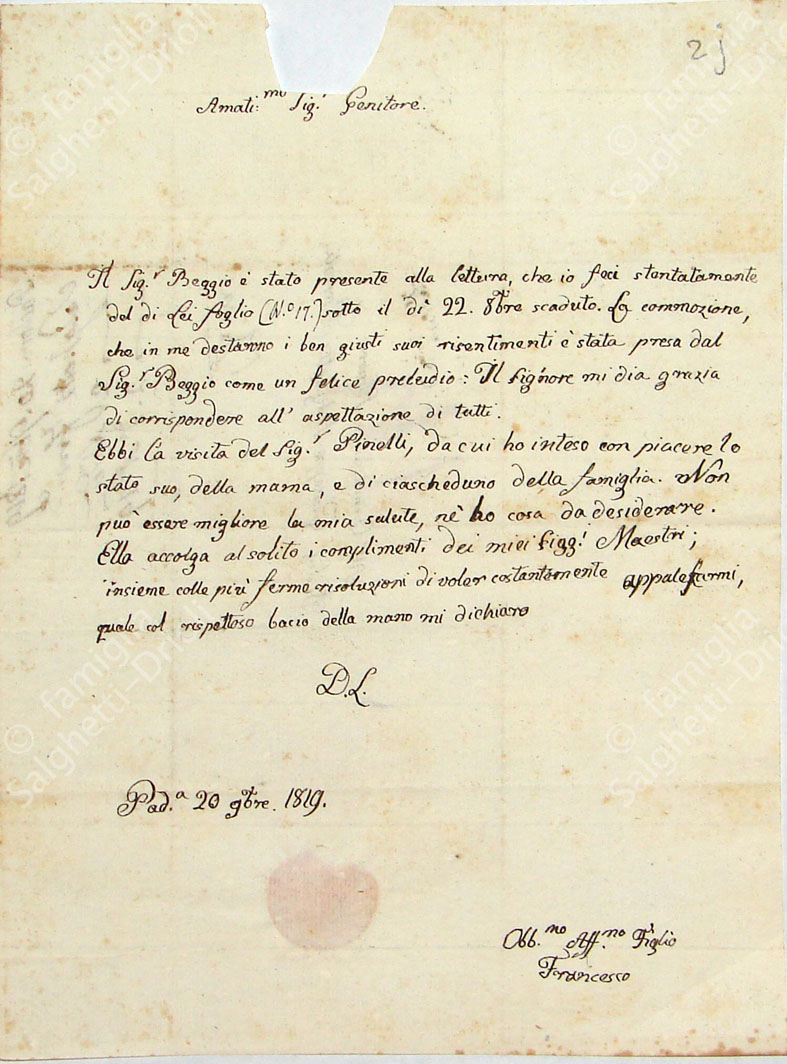 2j
Amati:mo Sig.r Genitore.
Il Sig.r Beggio è stato presente alla lettura, che io feci stentatamente
del di Lei foglio (N.o 17.) sotto il dì 22. 8bre scaduto. La commozione,
che in me destarono i ben giusti suoi risentimenti è stata presa dal
Sig.r Beggio come un felice preludio: Il Signore mi dia grazia
di corrispondere all' aspettazione di tutti.
Ebbi la visita del Sig.r Pinelli, da cui ho inteso con piacere lo
stato suo, della mama, e di ciascheduno della famiglia. Non
può essere migliore la mia salute, nè ho cosa da desiderare.
Ella accolga al solito i complimenti dei miei Sigg.i Maestri;
insieme colle più ferme risoluzioni di voler costantemente appalesarmi,
quale col rispettoso bacio della mano mi dichiaro
D.L.
Pad.a 20 9bre. 1819.
Obb.mo Aff.mo Figlio
Francesco
© famiglia
Salghetti-Drioli
© famiglia
Salghetti-Drioli
© famiglia
Salghetti-Drioli
© famiglia
Salghetti-Drioli